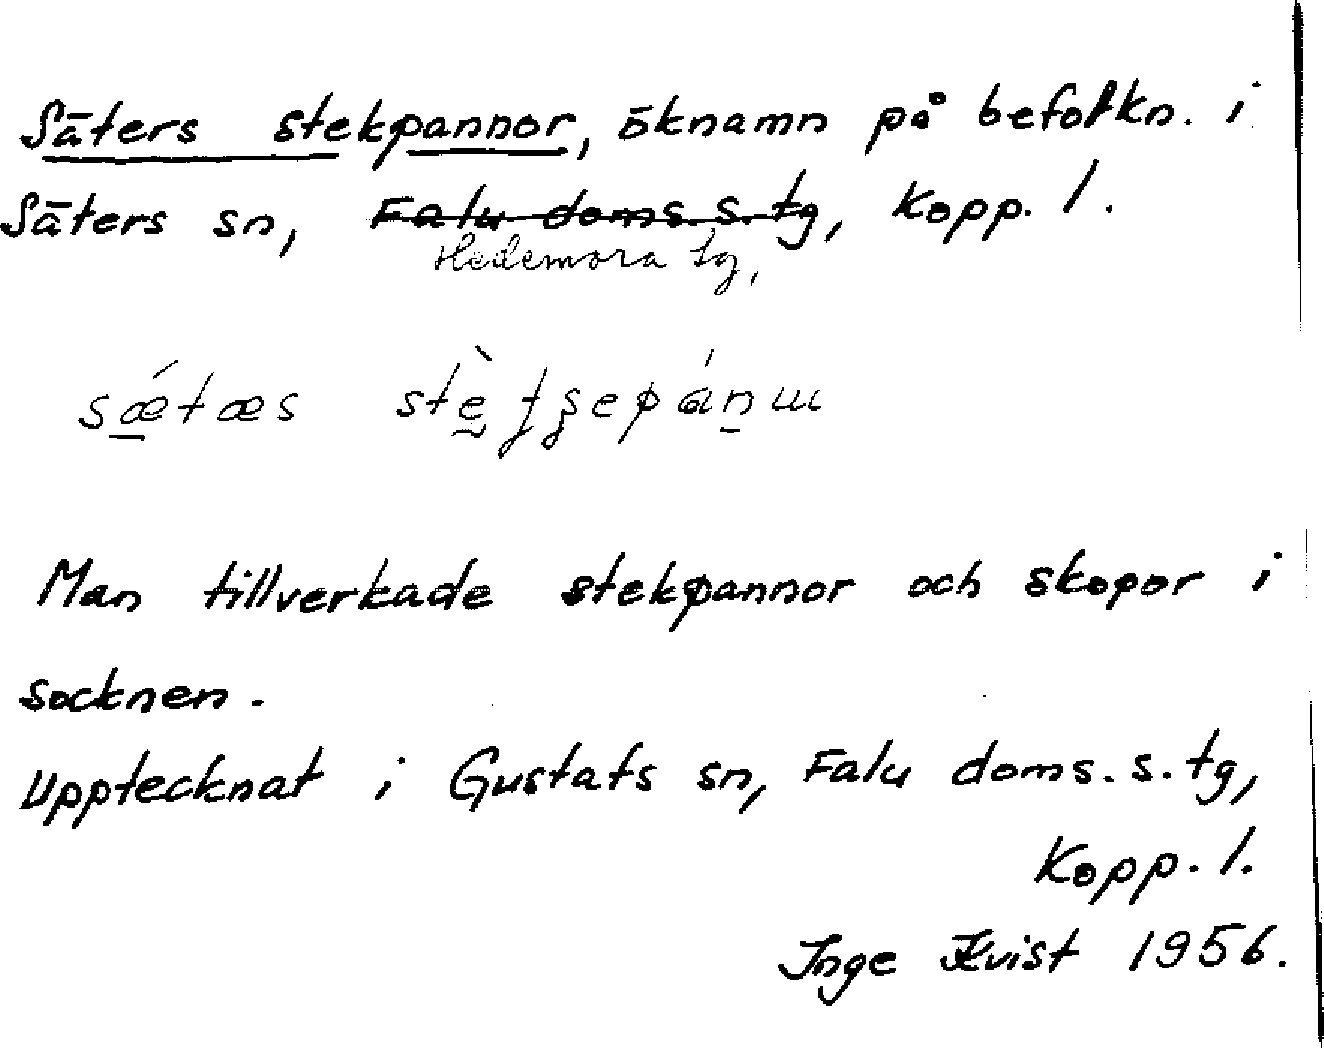 Säters stekpannor, öknamn på befolkn. i
Säters sn, Falu doms. s. tg, Kopp. l.
Hedemora tg,
Man tillverkade stekpannor och skopor i
socknen.
Upptecknat i Gustafs sn, Falu doms. s. tg,
Kopp. l.
Inge Kvist 1956.